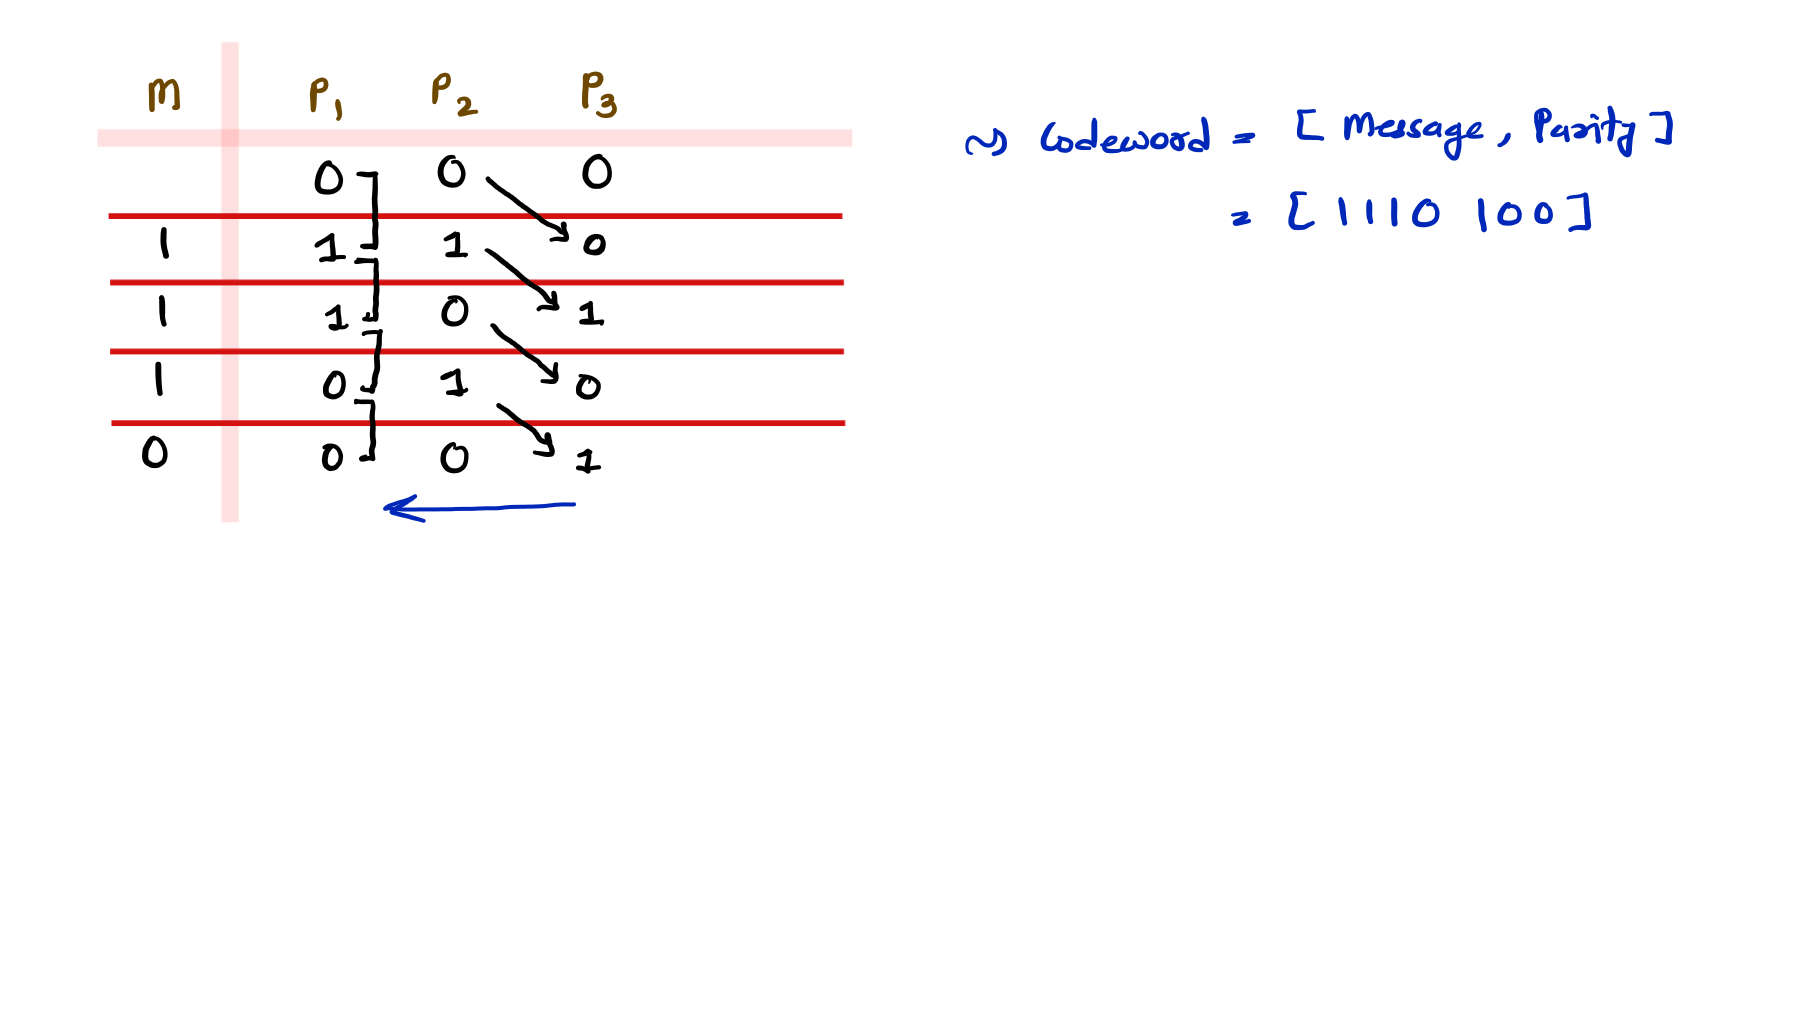 m P1 P2 P3
0 0 0
1 1 1 0
1 1 0 1
1 0 1 0
0 0 0 1
~> Codeword = [ Message, Parity ]
= [ 1110 100 ]